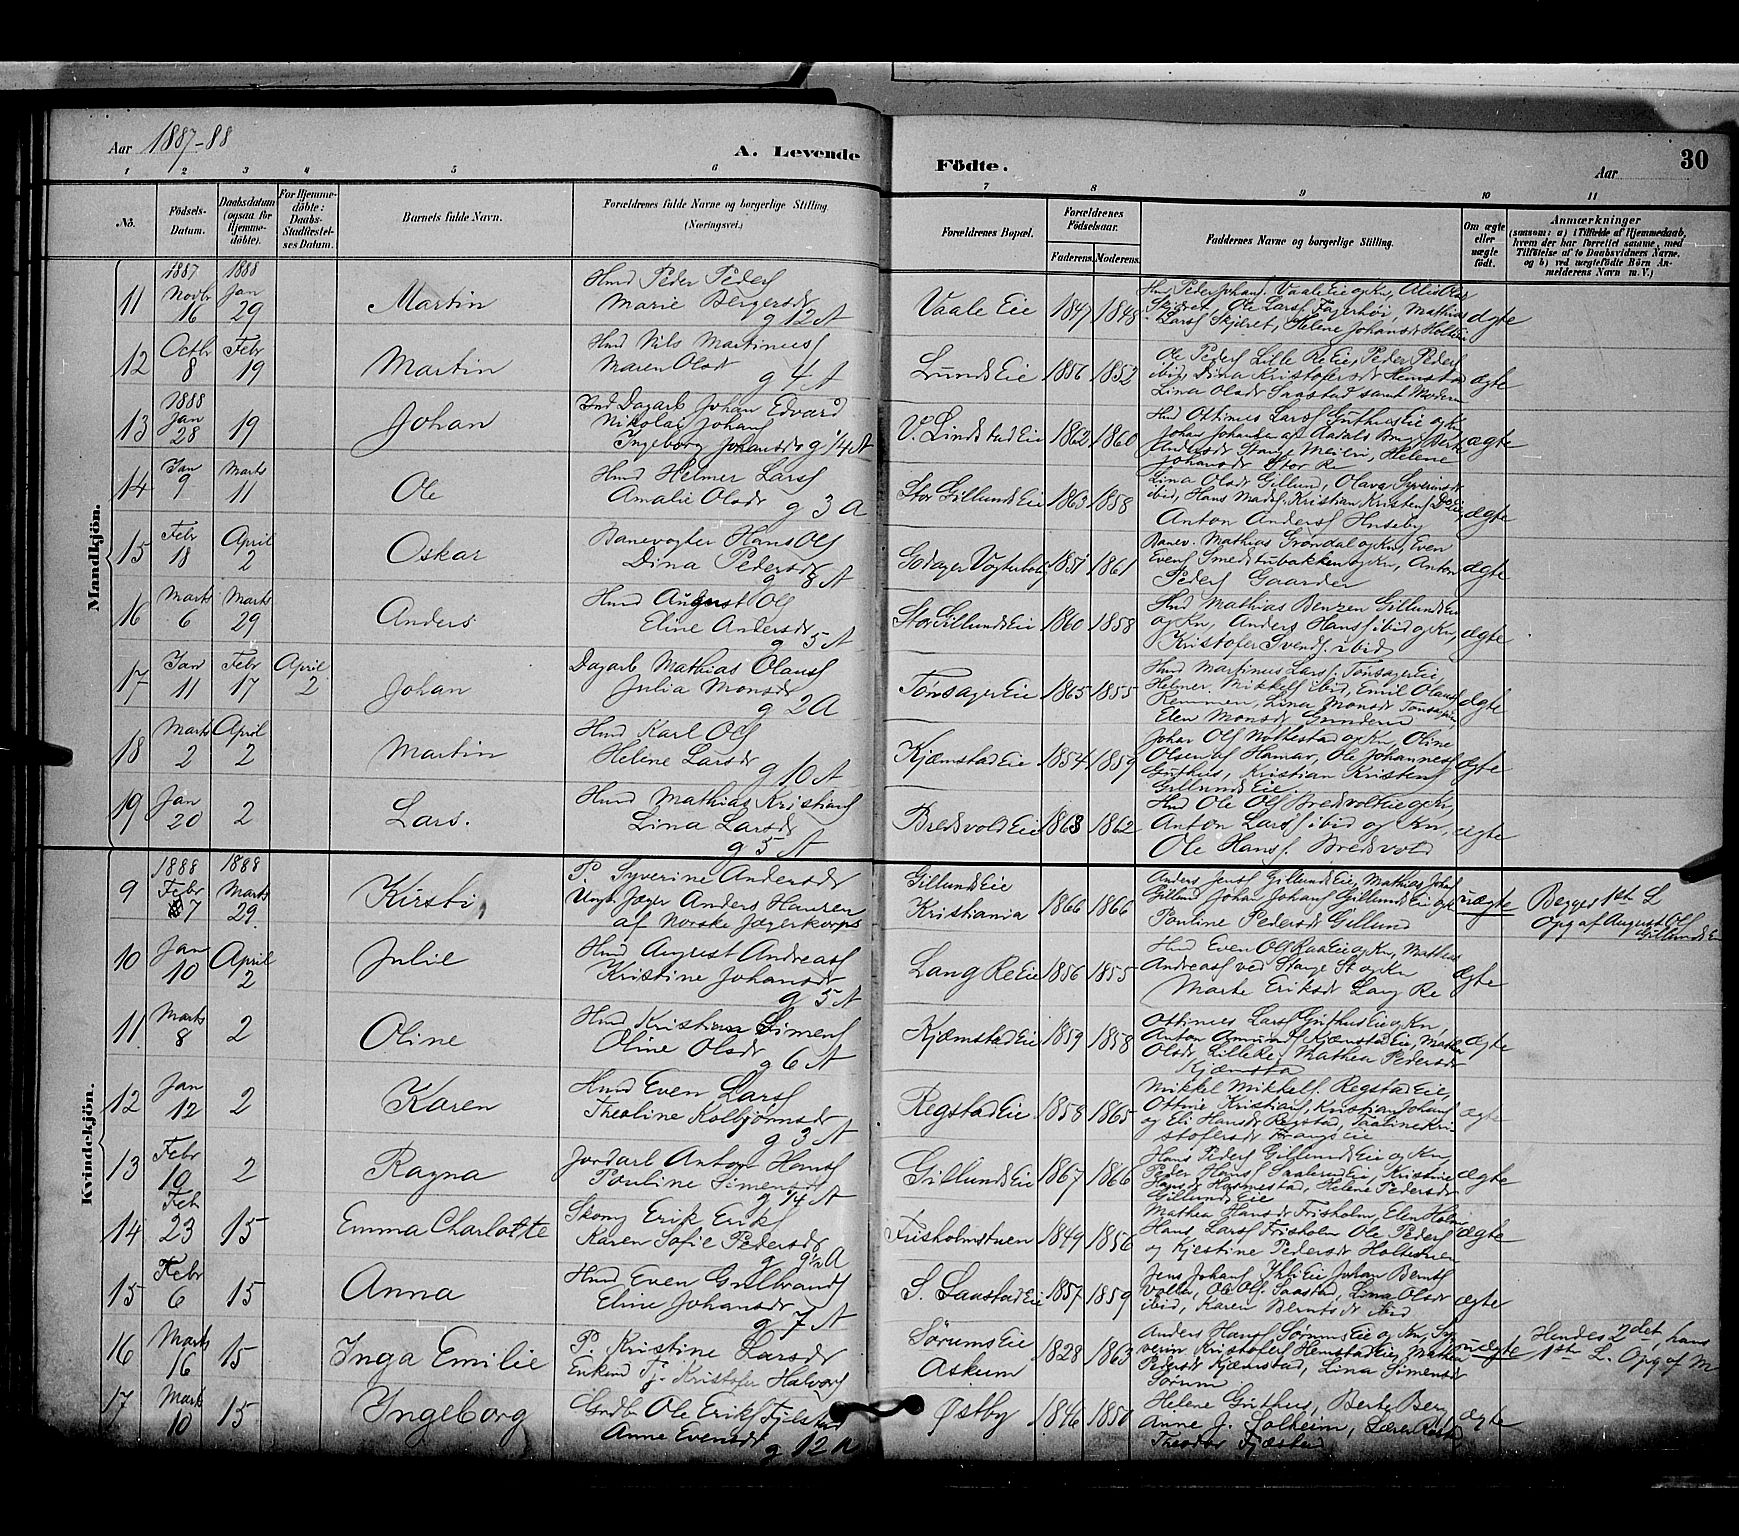 Aar 1887-88
A. Levende
Födte.
Aar
30
1 2 3 4 5 6 7 8 9 10 11
No.
Födsels-Datum.
Daabsdatum (ogsaa for Hjemmedöbte).
For Hjemmedöbte: Daabs-Stadfæstelses Datum.
Barnets fulde Navn.
Forældrenes fulde Navne og borgerlige Stilling. (Næringsvei.)
Forældrenes Bopæl.
Forældrenes Födselsaar.
Faderens. Moderens.
Faddernes Navne og borgerlige Stilling.
Om ægte eller uægte födt.
Anmærkninger
(saasom: a) i Tilfælde af Hjemmedaab, hvem der har forrettet samme, med Tilföielse af to Daabsvidners Navne. og b) ved uægtefödte Börn Anmelderens Navn m. V.)
Mandkjön.
11 1887 Novbr 16 1888 Jan 29 Martin
Hmd Peder Peders
Marie Bergersdr
g 12 A
Vaale Eie 1847 1848
ægte
12 Octbr 8 Febr 19 Martin
Hmd Nils Martinus
Maren Olsdr
g 4 A
Lunds Eie 1856 1852
Ole Peders Lille Re Eie, Peder Peders
ibid, Dina Kristofersdr Hemstad
Lina Olsdr Saastad samt Moderen
ægte
13 1888 Jan 28 19 Johan
Ind Dagarb Johan Edvard
Nikolai Johans
Ingeborg Johansdr g 1/4 A
V. Lindstad Eie 1862 1860
Hmd Ottinus Lars Guthus Eie og Kn
Johansdr Stor Re
ægte
14 Jan 9 Marts 11 Ole
Hmd Helmer Lars
Amalie Olsdr
g 3 A
Stor Gillunds Eie 1863 1858
Lina Olsdr Gillund, Olava Syverinsdr
ibid, Hans Mads, Kristian Kristens Do Eie
Anton Anders Huseby
ægte
15 Febr 18 April 2 Oskar
Banevogter Hans Ols
Dina Pedersdr
g 8 A
Godager Vogterbolig 1851 1861
Banev. Mathias Grøndal og Kn, Even
Evens Smedstubakken og Kn, Anton
Peders Gaarder
ægte
16 Marts 6 Marts 29 Anders
Hmd August Ols
Eline Andersdr
g 5 A
Stor Gillunds Eie 1860 1858
Hmd Mathias Benzen Gillunds Eie
og Kn, Anders Hans ibid og Kn,
Kristofer Svends ibid
ægte
17 Jan 11 Febr 17 April 2 Johan
Dagarb Mathias Olaus
Julia Monsdr
g 2 A
Tønsager Eie 1865 1855
Hmd Martinus Lars, Tønsager Eie,
Helmer Mikkels ibid, Emil Olaus
Remmen, Lina Monsdr Tønsager,
Elen Monsdr
ægte
18 Marts 2 April 2 Martin
Hmd Karl Ols
Helene Larsdr
g 10 A
Kjæmstad Eie 1854 1859
Johan Ols Nøttestad og Kn, Oline
Olsen af Hamar, Ole Johannes
Guthus, Kristian Kristens
Gillunds Eie.
ægte
19 Jan 20 2 Lars.
Hmd Mathias Kristians
Lina Larsdr
g 5 A
Bredsvold Eie 1863 1862
Hmd Ole Ols Bredsvold Eie og Kn,
Anton Lars ibid og Kn,
Ole Hans Bredsvold
ægte
Kvindekjön.
9 1888 Febr 7 1888 Marts 29 Kirsti
P. Syverine Andersdr
Ungk. Jæger Anders Hansen
af Norske Jægerkorps
Gillunds Eie
Kristiania 1866 1866
Anders Jens Gillunds Eie, Mathias Johans
Gillund Johan Johans Gillunds Eie og Kn
Pauline Pedersdr Gillund
uægte
Begges 1ste L
Opg af August Ols
Gillunds Eie
10 Jan 10 April 2 Julie
Hmd August Andreas
Kristine Johansdr
g 5 A
Lang Re Eie 1856 1855
Hmd Even Ols Raa Eie og Kn, Mathias
Andreas ved Stange St og Kn
Marte Eriksdr Lang Re
ægte
11 Marts 8 2 Oline
Hmd Kristian Simens
Oline Olsdr
g 6 A
Kjæmstad Eie 1859 1858
Ottinus Lars Guthus Eie og Kn,
Anton Amunds Kjæmstad Eie, Mathea
Olsdr Lille Re, Mathea Pedersdr
Kjæmsta
ægte
12 Jan 12 2 Karen
Hmd Even Lars
Theoline Kolbjørnsdr
g 3 A
Regstad Eie 1858 1865
Mikkel Mikkels Regstad Eie,
Ottine Kristians, Kristian Johans
og Eli Hansdr Regstad,
ægte
13 Febr 19 2 Ragna
Jordarb Anton Hans
Pauline Simensdr
g 1/4 A
Gillunds Eie 1867 1866
Hans Peders Gillunds Eie og Kn,
Peder Hans Saalerud Eie, Kristine
Helene Pedersdr
Gillunds Eie
ægte
14 Feb 23 15 Emma Charlotte
Skom Erik Eriks
Karen Sofie Pedersdr
g 9 1/2 A
Frisholmstuen 1849 1856
Mathea Hansdr Frisholm, Elen Holm
Hans Lars Frisholm Ole Peders
og Kjestine Pedersdr
ægte
15 Febr 6 15 Anna
Hmd Even Gulbrands
Eline Johansdr
g 7 A
S. Saastad Eie 1857 1859
Ole Ols Saastad, Lina Olsdr
ibid, Karen Berntsdr ibid
ægte
16 Marts 16 15 Inga Emilie
P. Kristine Larsdr
Enkemd Tj. Kristofer Halvors
Sørums Eie
Askum 1828 1863
Anders Hans Sørums Eie og Kn, Sy
verin Kristofers Hemstad Eie, Mathea
Pedersdr Kjæmstad, Lina Simensdr
Sørum
uægte
Hendes 2det, hans
1ste L. Opg af M
17 Mark 10 15 Ingeborg
Gmdbr Ole Eriks Fjelstad
Anne Evensdr
g 12 A
Østby 1846 1850
Helene Guthus, Berte Berg
Anne J. Solheim,
Theodor Fjæstad
ægte